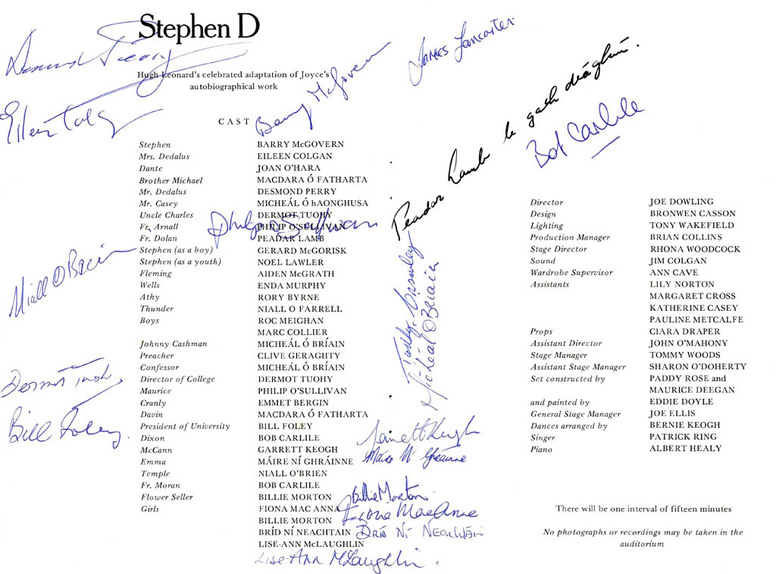 Stephen D
Hugh Leonard's celebrated adaptation of Joyce's
autobiographical work
CAST
Stephen BARRY McGOVERN
Mrs. Dedalus EILEEN COLGAN
Dante JOAN O'HARA
Brother Michael MACDARA Ó FATHARTA
Mr. Dedalus DESMOND PERRY
Mr. Casey MICHEÁL Ó hAONGHUSA
Uncle Charles DERMOT TUOHY
Fr. Arnall PHILIP O'SULLIVAN
Fr. Dolan PEADAR LAMB
Stephen (as a boy) GERARD McGORISK
Stephen (as a youth) NOEL LAWLER
Fleming AIDEN McGRATH
Wells ENDA MURPHY
Athy RORY BYRNE
Thunder NIALL O FARRELL
Boys ROC MEIGHAN
MARC COLLIER
Johnny Cashman MICHEÁL Ó BRÍAIN
Preacher CLIVE GERAGHTY
Confessor MICHEÁL Ó BRÍAIN
Director of College DERMOT TUOHY
Maurice PHILIP O'SULLIVAN
Cranly EMMET BERGIN
Davin MACDARA Ó FATHARTA
President of University BILL FOLEY
Dixon BOB CARLILE
McCann GARRETT KEOGH
Emma MÁIRE NÍ GHRÁINNE
Temple NIALL O'BRIEN
Fr. Moran BOB CARLILE
Flower Seller BILLIE MORTON
Girls FIONA MAC ANNA
BILLIE MORTON
BRÍD NÍ NEACHTAIN
LISE-ANN McLAUGHLIN
Director JOE DOWLING
Design BRONWEN CASSON
Lighting TONY WAKEFIELD
Production Manager BRIAN COLLINS
Stage Director RHONA WOODCOCK
Sound JIM COLGAN
Wardrobe Supervisor ANN CAVE
Assistants LILY NORTON
MARGARET CROSS
KATHERINE CASEY
PAULINE METCALFE
Props CIARA DRAPER
Assistant Director JOHN O'MAHONY
Stage Manager TOMMY WOODS
Assistant Stage Manager SHARON O'DOHERTY
Set constructed by PADDY ROSE and
MAURICE DEEGAN
and painted by EDDIE DOYLE
General Stage Manager JOE ELLIS
Dances arranged by BERNIE KEOGH
Singer PATRICK RING
Piano ALBERT HEALY
There will be one interval of fifteen minutes
No photographs or recordings may be taken in the
auditorium
Barry McGovern
James Lancaster
Peadar Lamb le gach
Bob Carlile
Philip O'Sullivan
Micheál Ó Briain
Bill Foley
Máire Ní Ghráinne
Billie Morton
Bríd Ní Neachtain
Lise-Ann McLaughlin.